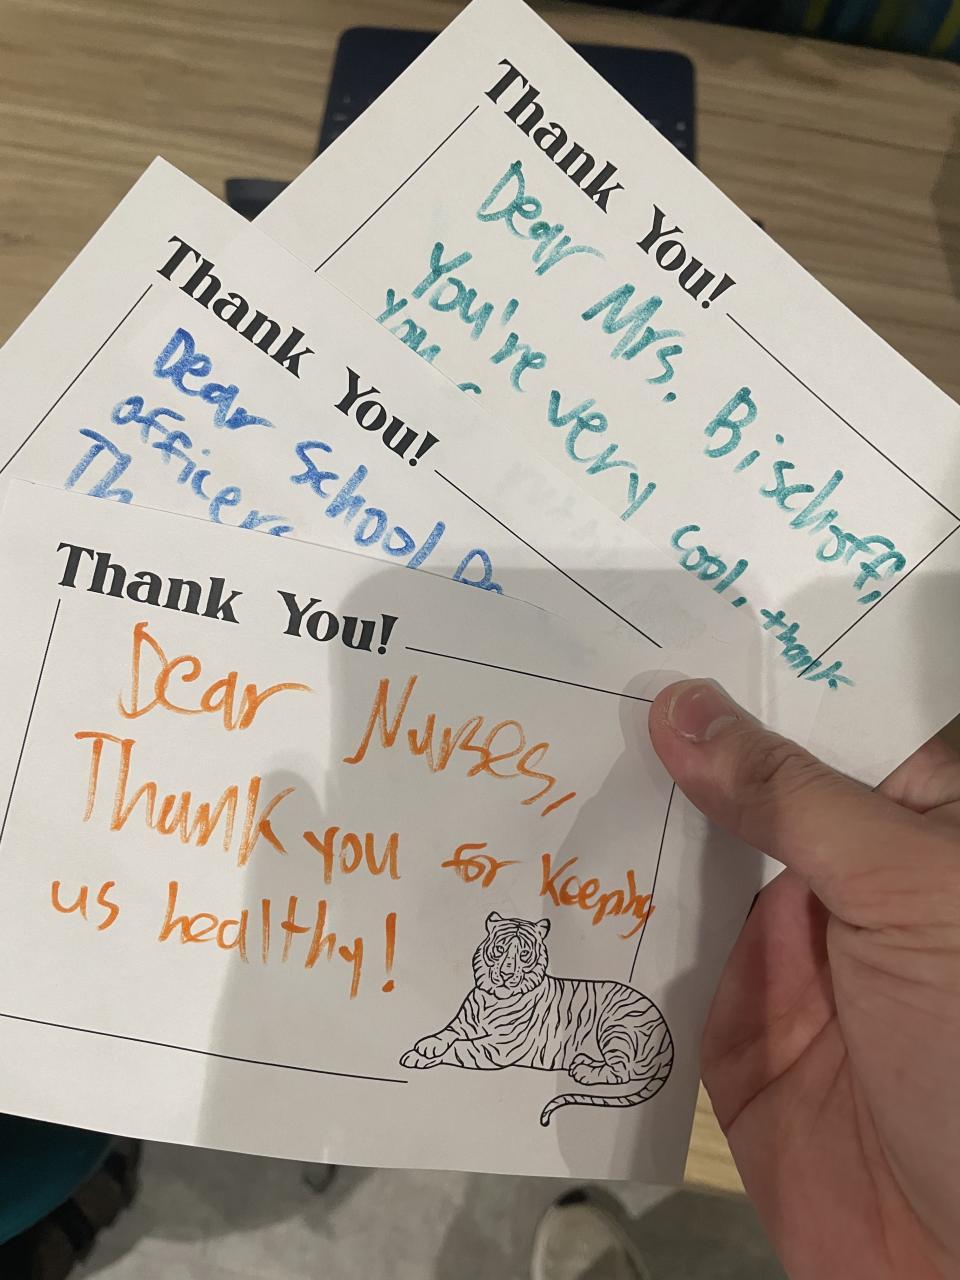 Thank You!
Dear Mrs. Bischoff,
You're very cool, thank
you
Thank You!
Dear School
officers
Th
Thank You!
Dear Nurses,
Thank you for Keeping
us healthy!